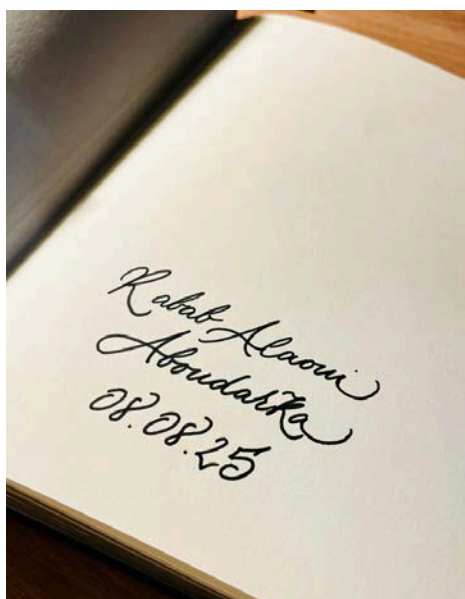 Rabab Alaoui
Aboudarka
08.08.25